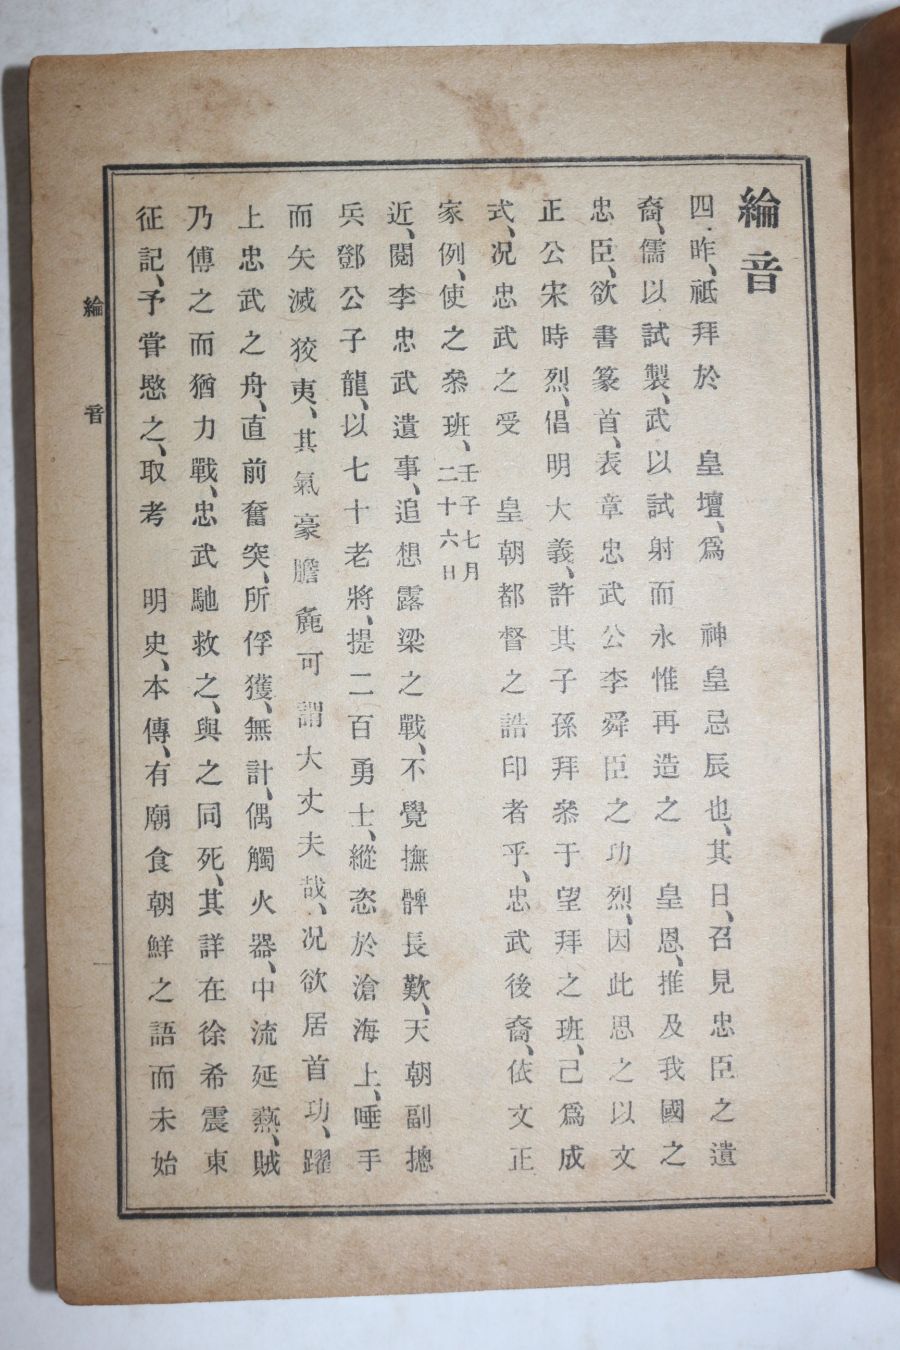 綸音
四昨、祗拜於　皇壇、爲　神皇忌辰也、其日、召見忠臣之遺
裔、儒以試製、武以試射而永惟再造之　皇恩、推及我國之
忠臣、欲書篆首、表章忠武公李舜臣之功烈、因此思之以文
正公宋時烈、倡明大義、許其子孫拜叅于望拜之班、己爲成
式、况忠武之受　皇朝都督之誥印者乎、忠武後裔、依文正
家例、使之叅班、壬子七月二十六日
近、閱李忠武遺事、追想露梁之戰、不覺撫髀長歎、天朝副摠
兵鄧公子龍、以七十老將、提二百勇士、縱恣於滄海上、唾手
而矢滅狡夷、其氣豪膽麁可謂大丈夫哉、况欲居首功、躍
上忠武之舟、直前奮突、所俘獲、無計、偶觸火器、中流延爇、賊
乃傅之而猶力戰、忠武馳救之、與之同死、其詳在徐希震東
征記、予甞愍之、取考　明史、本傳、有廟食朝鮮之語而未始
綸音